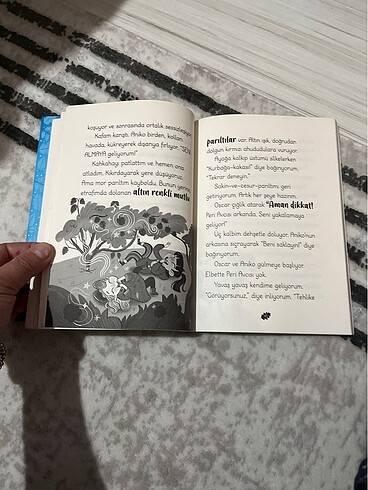 koşuyor ve sonrasında ortalık sessizleşiyor.
Kafam karıştı. Aniko birden, kolları
havada, kükreyerek dışarıya fırlıyor. "SENİ
ALMAYA geliyorum!"
Kahkahayı patlattım ve hemen ona
atladım. Kıkırdayarak yere düşüyoruz.
Ama mor parıltım kayboldu. Bunun yerine,
etrafımda dolanan altın renkli mutlu
parıltılar var. Altın ışık, doğrudan
dolgun kırmızı ahududulara vuruyor.
Ayağa kalkıp üstümü silkelerken
"Kurbağa-kakası!" diye bağırıyorum.
"Tekrar deneyin."
Sakin-ve-cesur-parıltımı geri
getiriyorum. Artık her şeye hazırım.
Oscar çığlık atarak "Aman dikkat!
Peri Avcısı arkanda. Seni yakalamaya
geliyor!"
Üç kalbim dehşetle doluyor. Aniko'nun
arkasına sıçrayarak "Beni saklayın!" diye
bağırıyorum.
Oscar ve Aniko gülmeye başlıyor.
Elbette Peri Avcısı yok.
Yavaş yavaş kendime geliyorum.
"Görüyorsunuz," diye inliyorum. "Tehlike